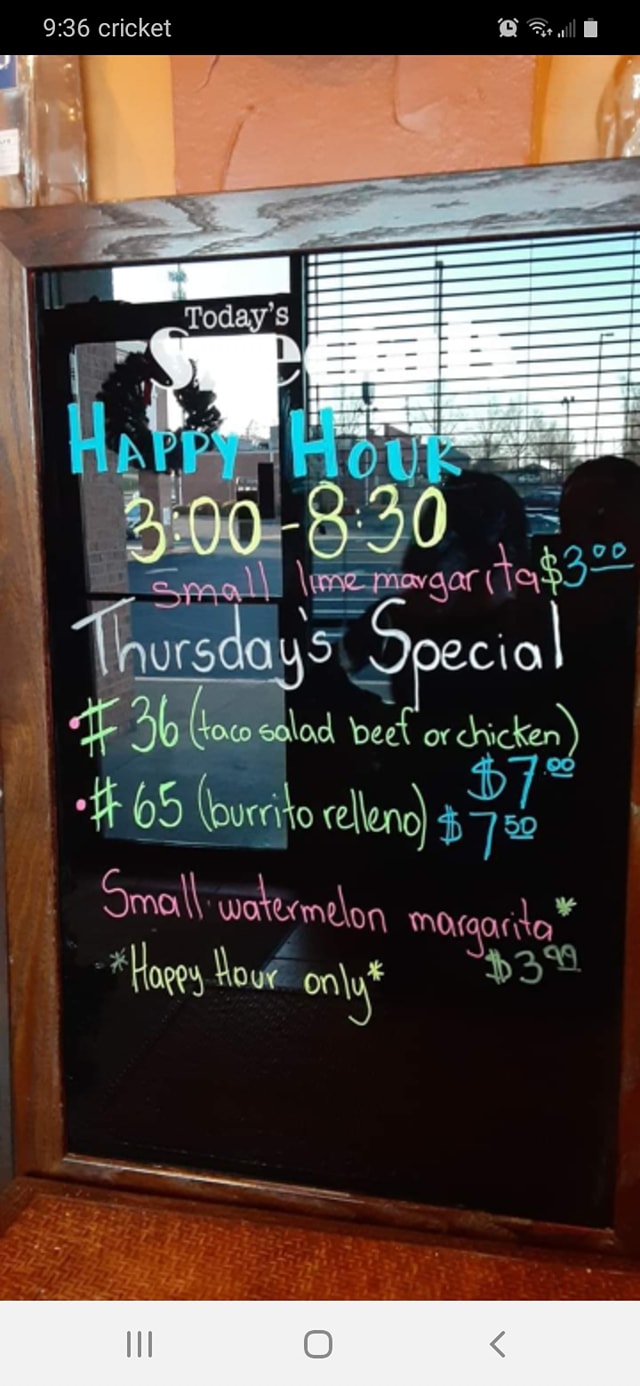 9:36 cricket
Today's
Specials
HAPPY HOUR
3:00-8:30
small lime margarita $3.00
Thursday's Special
• # 36 (taco salad beef or chicken)
$7.00
• # 65 (burrito relleno) $7.50
Small watermelon margarita*
$3.99
*Happy Hour only*